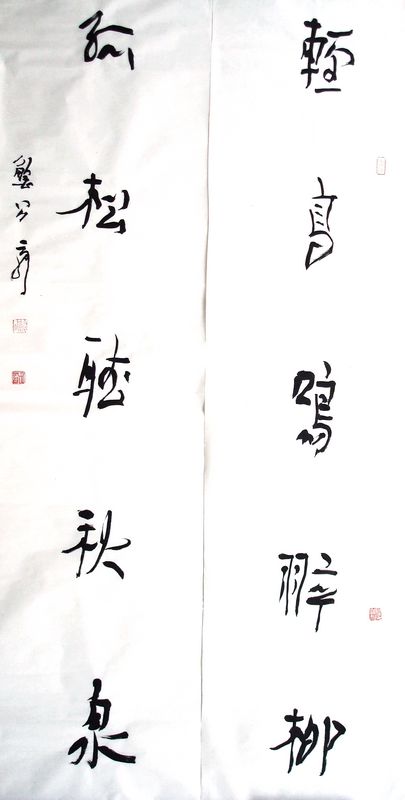 輕鳥鳴翠柳
孤松聽秋泉